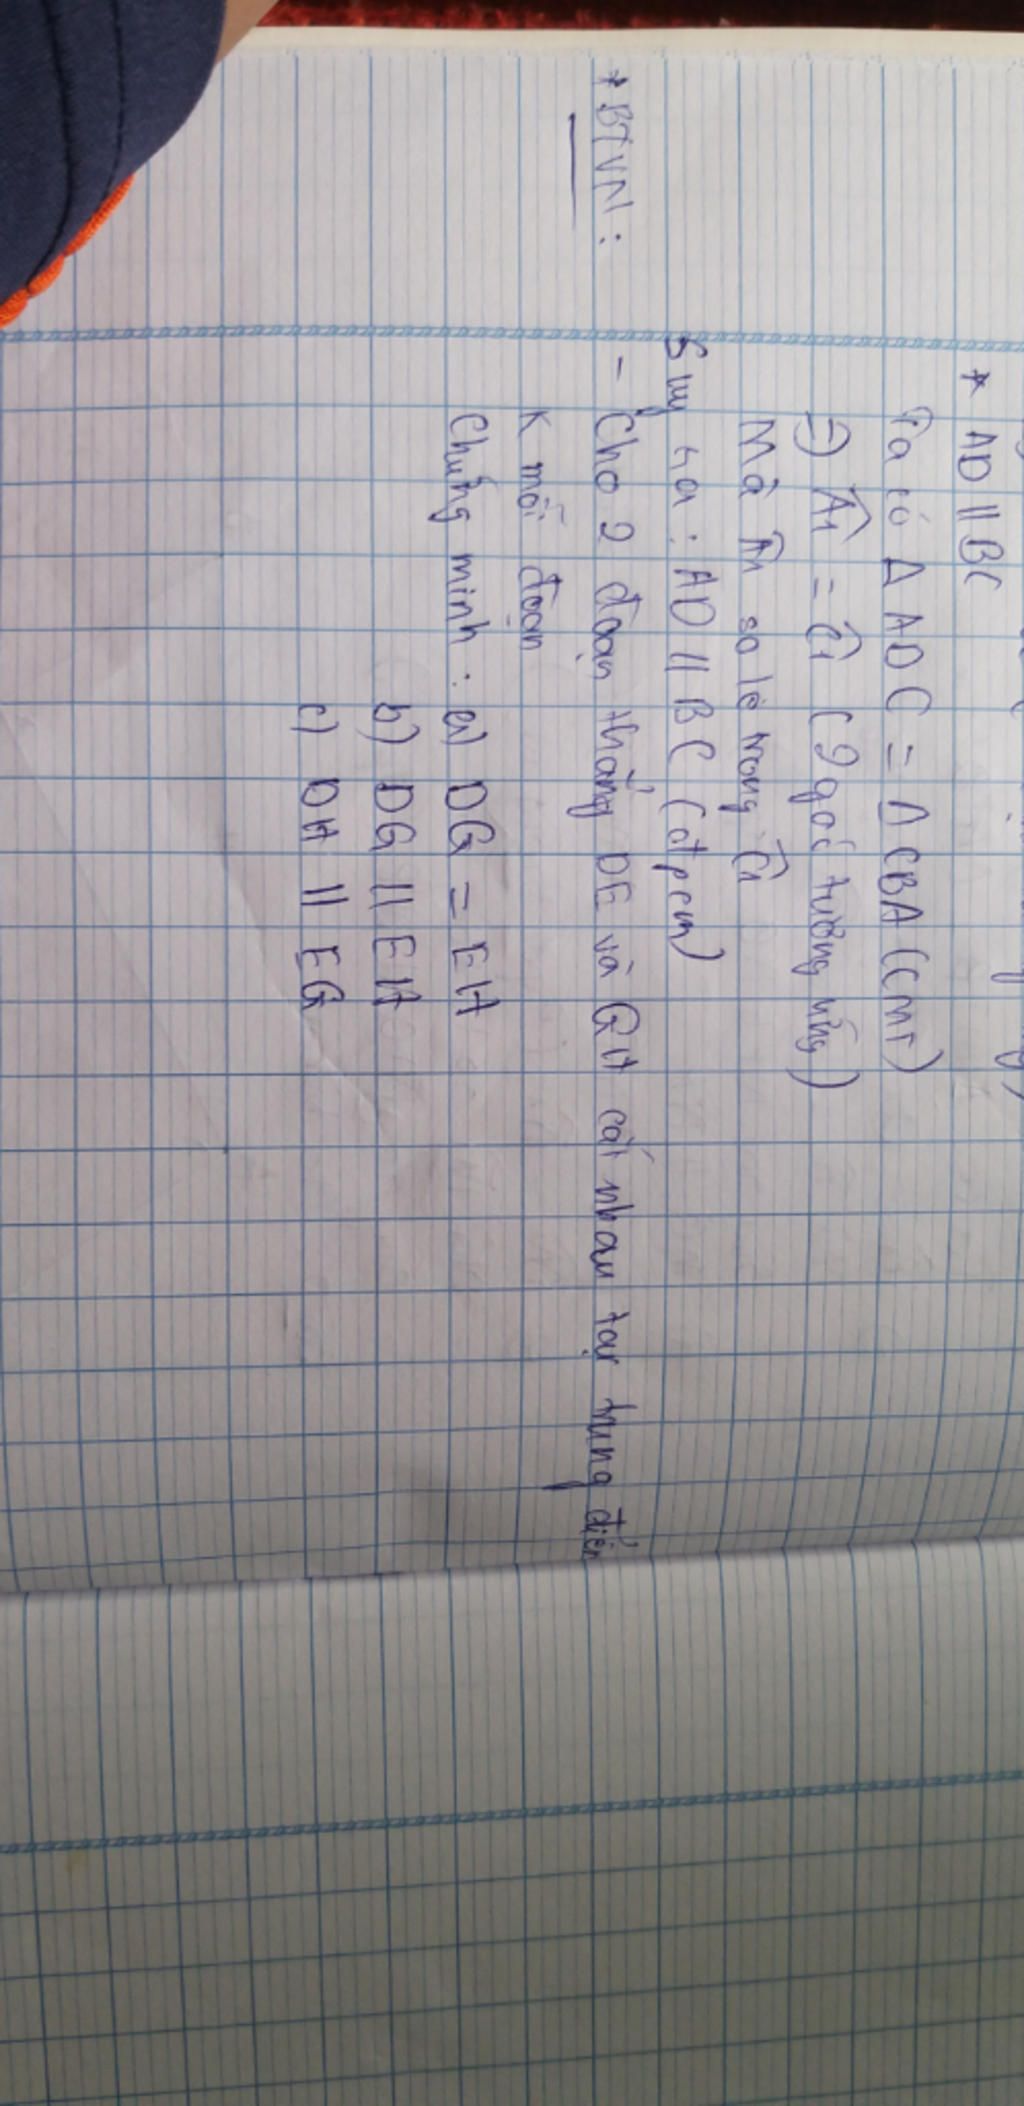 * AD // BC
Ta có Δ ADC = Δ CBA (cmt)
=> Â1 = Ĉ1 (2 góc tương ứng)
Mà Â1 so le trong Ĉ1
Suy ra : AD // BC (đtpcm)
* BTVN :
- Cho 2 đoạn thẳng DE và GH cắt nhau tại trung điểm
K mỗi đoạn
Chứng minh : a) DG = EH
b) DG // EH
c) DH // EG